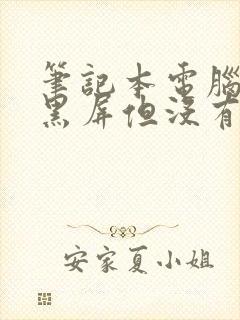 筆記本電腦
黑屏但沒有
安家夏小姐